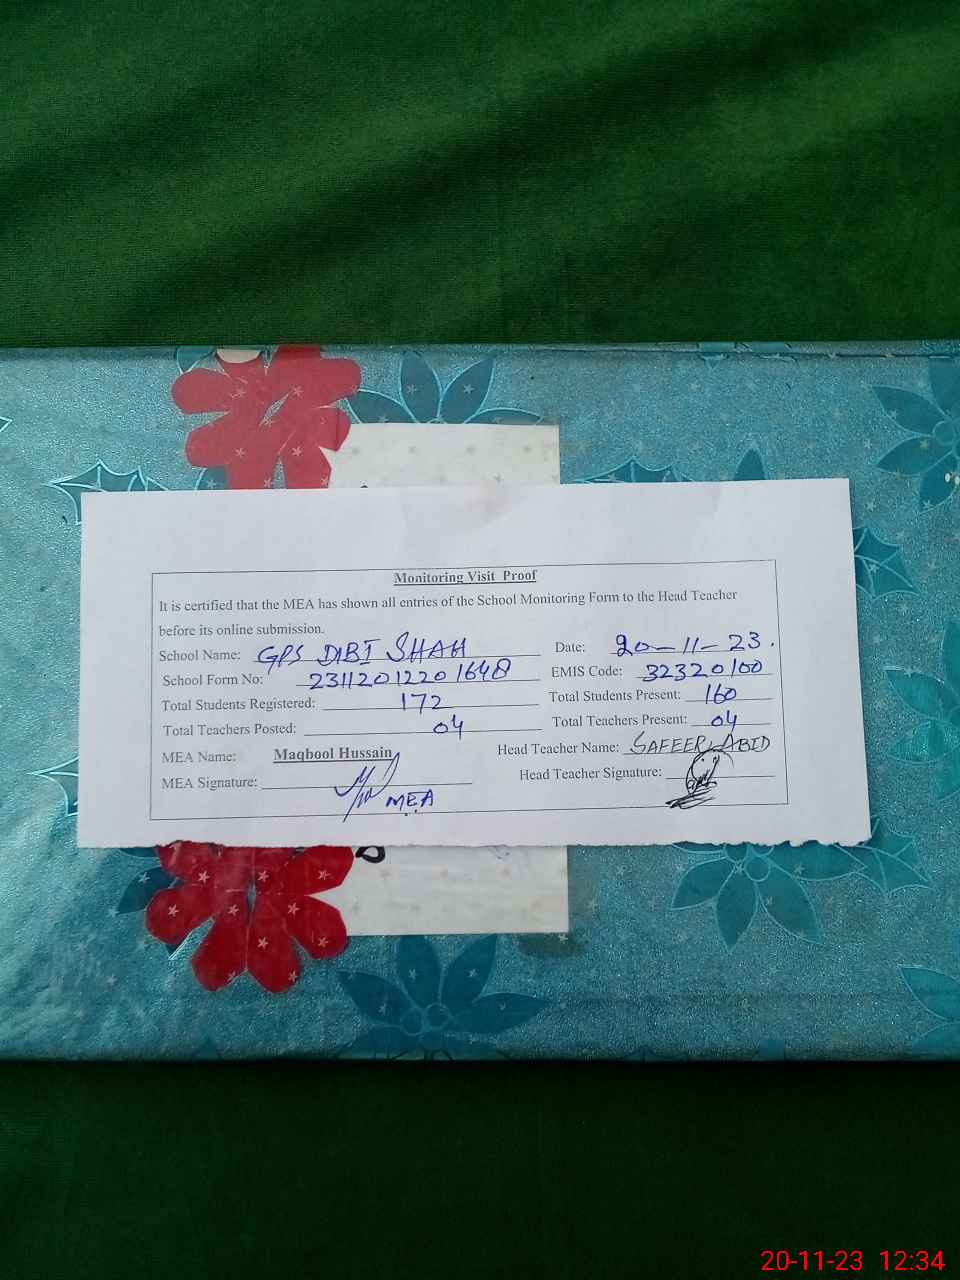 Monitoring Visit Proof
It is certified that the MEA has shown all entries of the School Monitoring Form to the Head Teacher
before its online submission.
School Name: GPS DIBI SHAH Date: 20-11-23.
School Form No: 2311201220 1648 EMIS Code: 32320100
Total Students Registered: 172 Total Students Present: 160
Total Teachers Posted: 04 Total Teachers Present: 04
MEA Name: Maqbool Hussain Head Teacher Name: SAFEER ABID
MEA Signature: Head Teacher Signature:
MEA
20-11-23 12:34